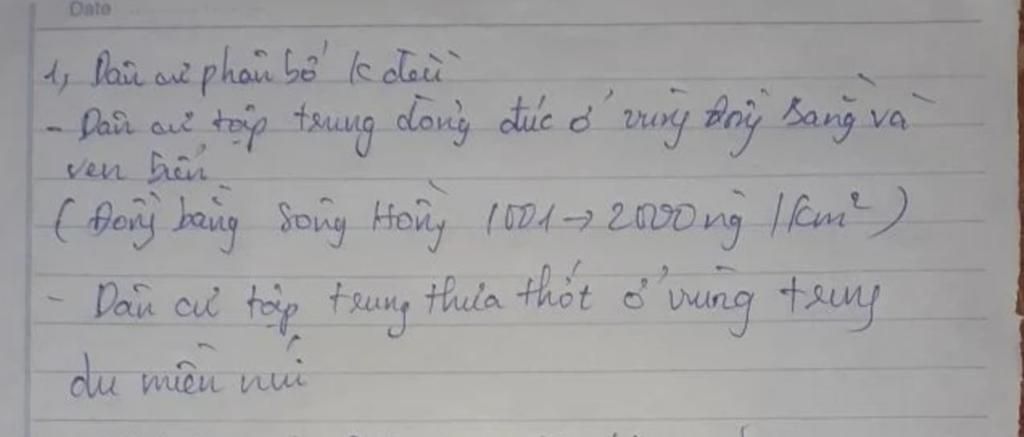 Date
1, Dân cư phân bố k đều
- Dân cư tập trung đông đúc ở vùng đồng bằng và
ven biển
( Đồng bằng Sông Hồng 1001 → 2000 ng /km²)
- Dân cư tập trung thưa thớt ở vùng trung
du miền núi